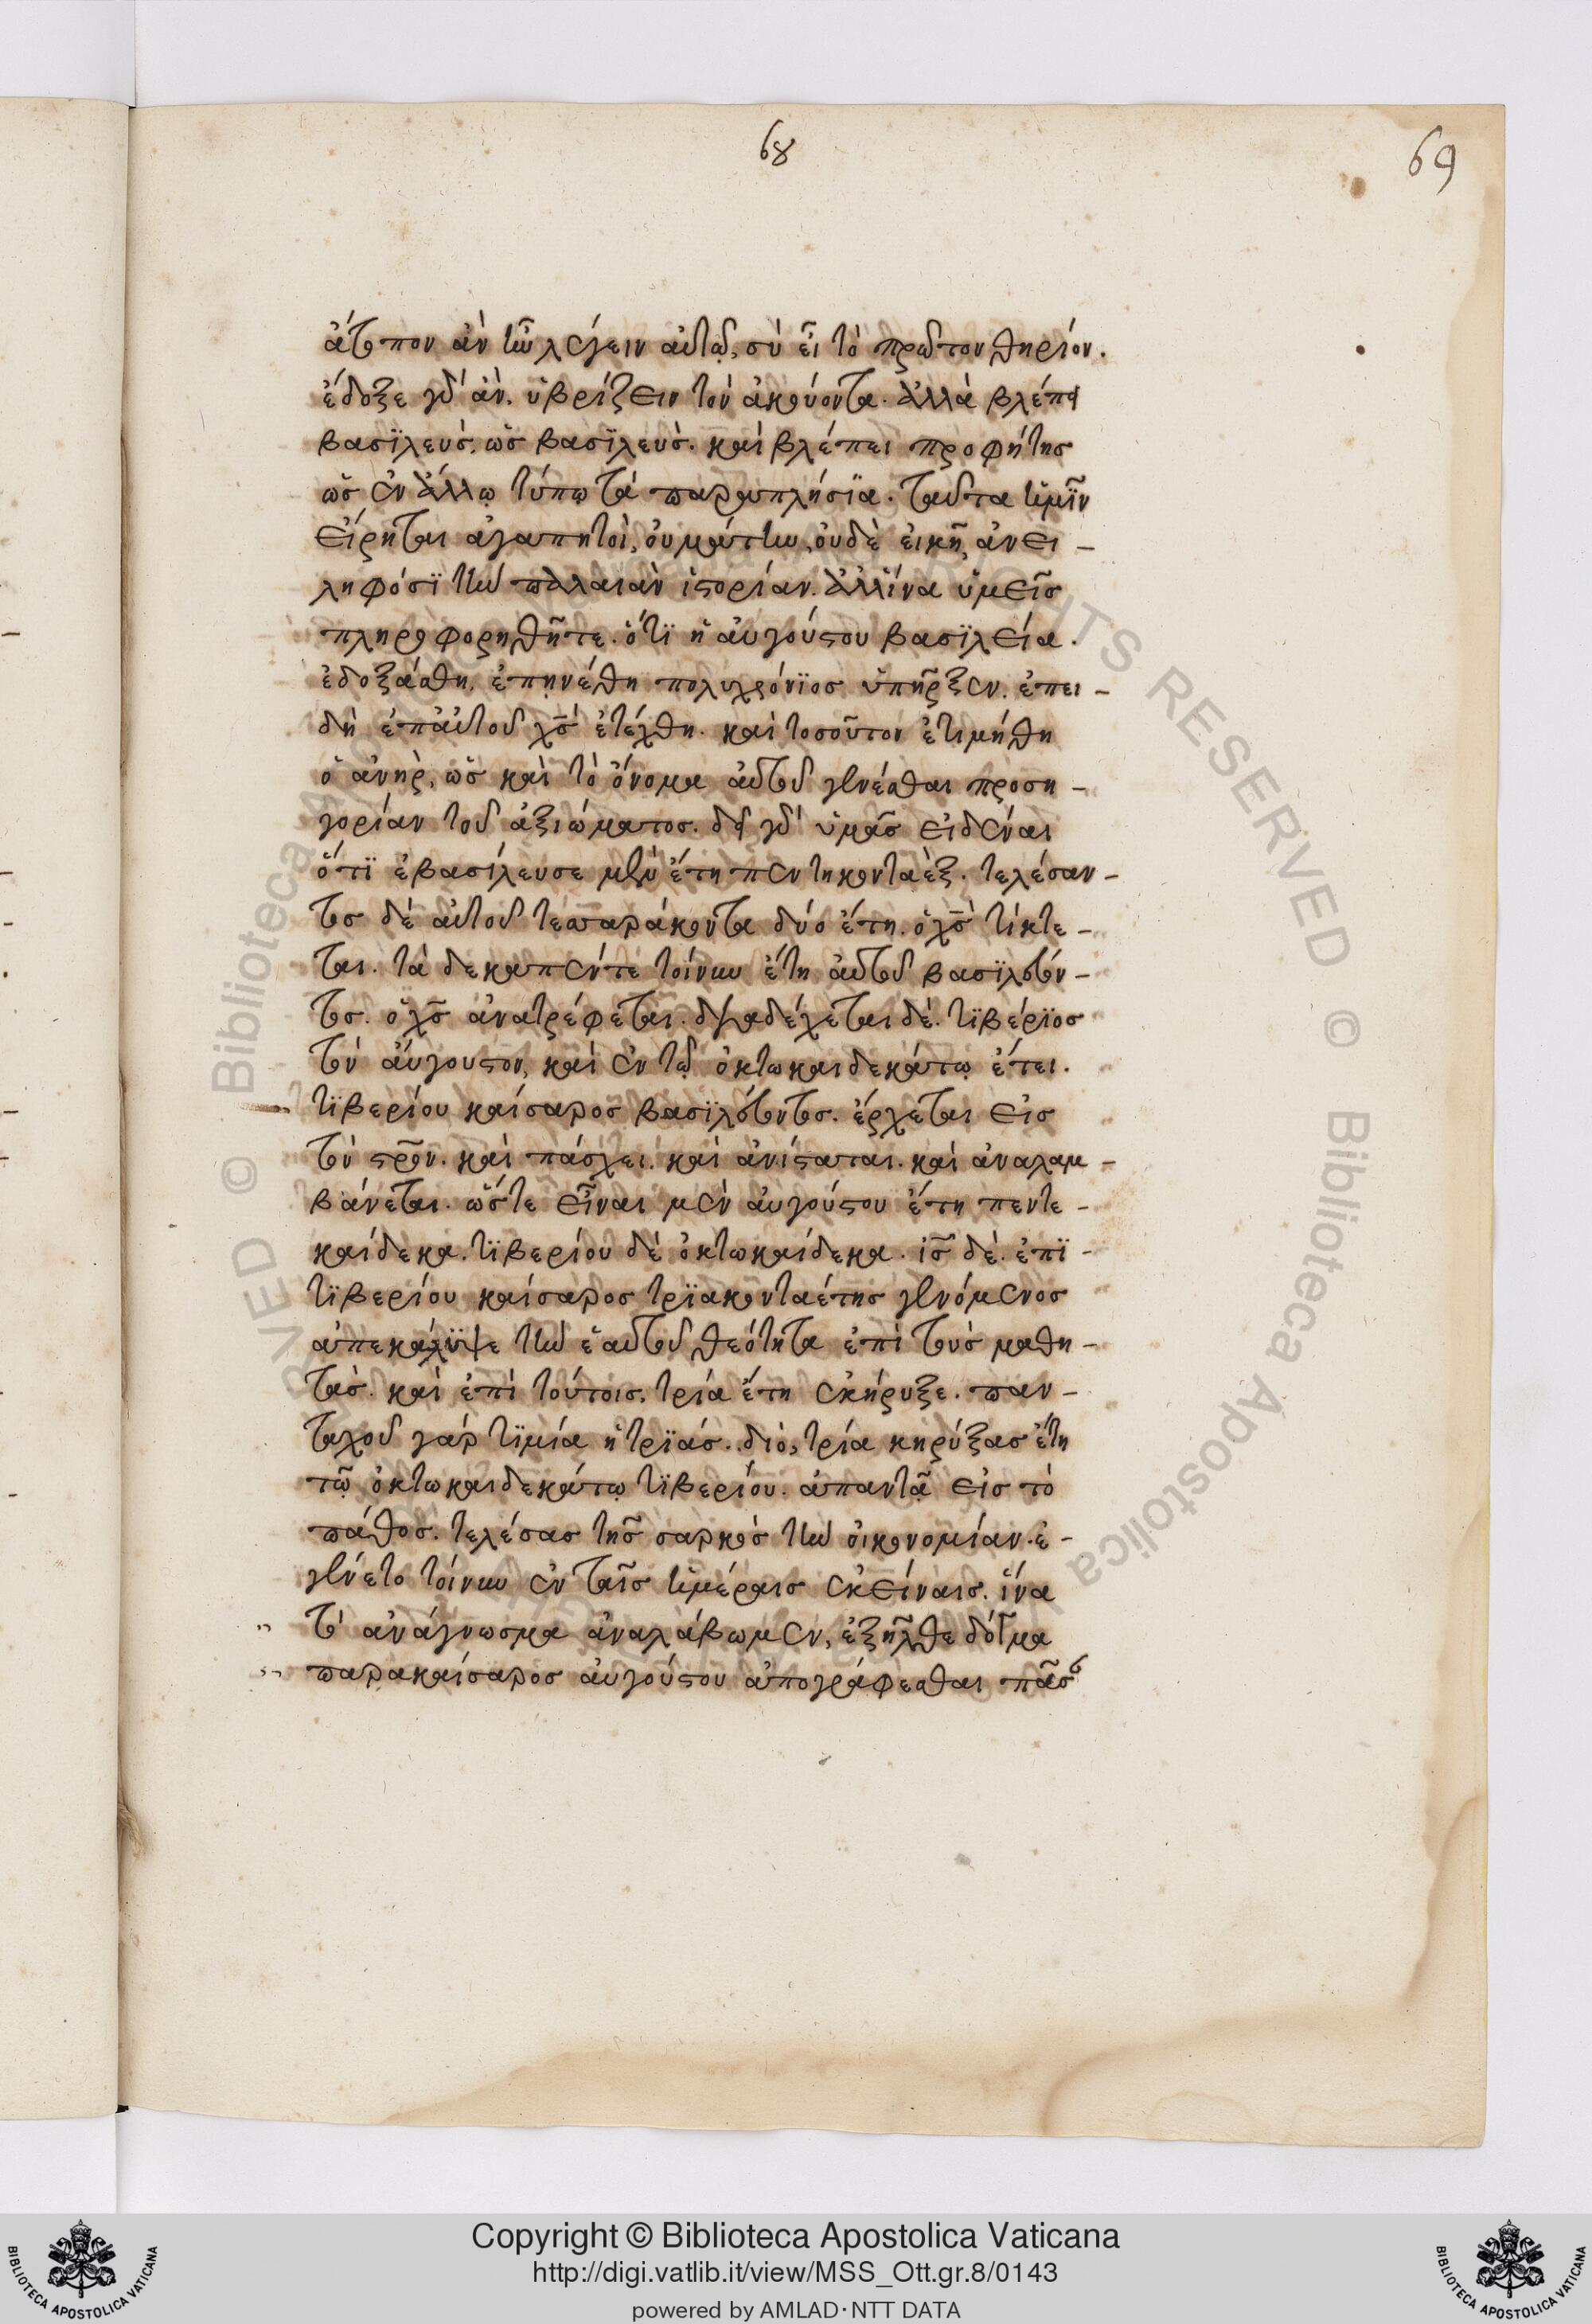 68
69
ἄτοπον ἂν ἦν λέγειν αὐτῷ, σὺ εἶ τὸ πρῶτον θηρίον.
ἔδοξε γὰρ ἂν ὑβρίζειν τὸν ἀκούοντα. ἀλλὰ βλέπει
βασϊλεὺς, ὡς βασϊλεὺς. καὶ βλέπει προφήτης
ὡς ἐν ἄλλῳ τύπῳ τὰ παραπλήσϊα. ταῦτα ἡμῖν
εἴρηται ἀγαπητοὶ, οὐ μάτην, οὐδὲ εἰκῆ, ἀνει-
ληφόσϊ τὴν παλαιὰν ἱστορίαν. ἀλλ' ἵνα ὑμεῖς
πληροφορηθῆτε. ὅτϊ ἡ αὐγούστου βασϊλεία.
ἐδοξάσθη, ἐπῃνέθη πολυχρόνϊος ὑπῆρξεν. ἐπει-
δὴ ἐπ' αὐτοῦ χς ἐτέχθη. καὶ τοσοῦτον ἐτιμήθη
ὁ ἀνὴρ, ὡς καὶ τὸ ὄνομα αὐτοῦ γενέσθαι προση-
γορίαν τοῦ ἀξιώματος. δεῖ γὰρ ὑμᾶς εἰδέναι
ὅτϊ ἐβασίλευσε μὲν ἔτη πεντηκονταὲξ. τελέσαν-
τος δὲ αὐτοῦ τεσσαράκοντα δύο ἔτη. ὁ χς τίκτε-
ται. τὰ δεκαπέντε τοίνυν ἔτη αὐτοῦ βασϊλεύον-
τος. ὁ χς ἀνατρέφεται. διαδέχεται δὲ. τϊβέρϊος
τὸν ἄυγουστον, καὶ ἐν τῷ ὀκτωκαιδεκάτῳ ἔτει.
τϊβερίου καίσαρος βασϊλεύοντος. ἔρχεται εἰς
τὸν στρον. καὶ πάσχει. καὶ ἀνίσταται. καὶ ἀναλαμ-
βάνεται. ὥστε εἶναι μὲν αὐγούστου ἔτη πεντε-
καίδεκα. τϊβερίου δὲ ὀκτωκαίδεκα. ις δὲ. ἐπϊ-
τϊβερίου καίσαρος τρϊακονταέτης γενόμενος
ἀπεκάλυψε τὴν ἑαυτοῦ θεότητα ἐπὶ τοὺς μαθη-
τὰς. καὶ ἐπὶ τούτοις, τρία ἔτη ἐκήρυξε. παν-
ταχοῦ γὰρ τϊμία ἡ τρϊάς. διὸ, τρία κηρύξας ἔτη
τῷ ὀκτωκαιδεκάτῳ τϊβερίου. ἀπαντᾷ εἰς τὸ
πάθος. τελέσας τῆς σαρκὸς τὴν οἰκονομίαν. ἐ-
γένετο τοίνυν ἐν ταῖς ἡμέραις ἐκείναις. ἵνα
τὸ ἀνάγνωσμα ἀναλάβωμεν, ἐξῆλθε δόγμα
παρακαίσαρος αὐγούστου ἀπογράφεσθαι πᾶσαν
Copyright © Biblioteca Apostolica Vaticana
http://digi.vatlib.it/view/MSS_Ott.gr.8/0143
powered by AMLAD·NTT DATA
BIBLIOTECA APOSTOLICA VATICANA
BIBLIOTECA APOSTOLICA VATICANA